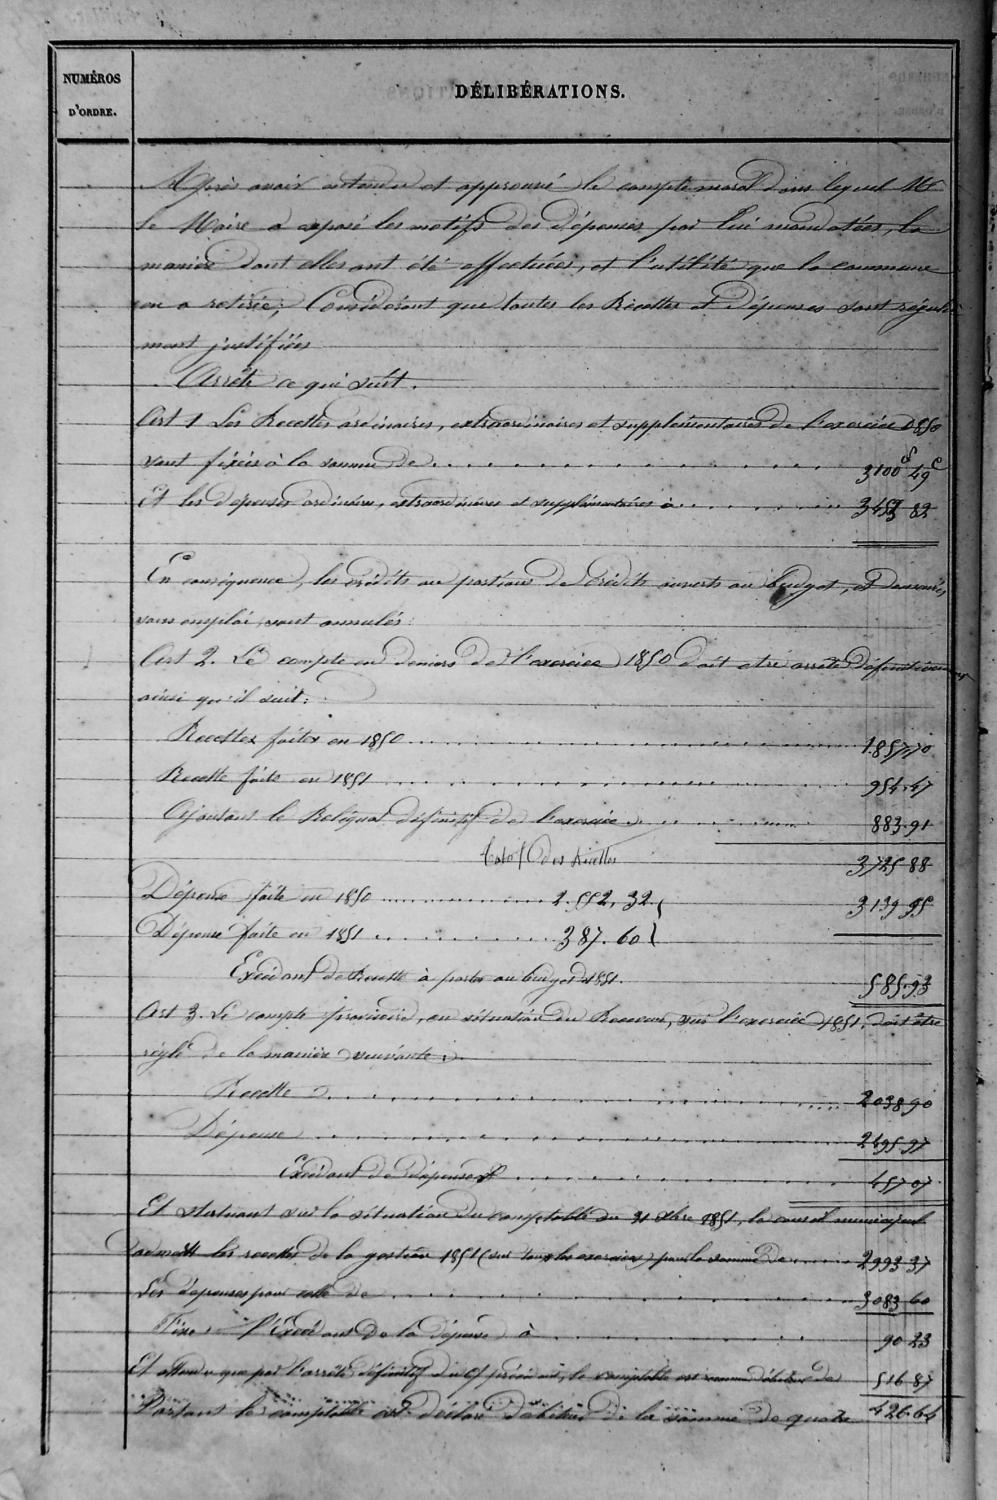 NUMÉROS
D'ORDRE.
DÉLIBÉRATIONS.
Après avoir entendu et approuvé le compte moral dans lequel Mr
le Maire a exposé les motifs des Dépenses par lui mandatées, la
manière dont elles ont été effectuées, et l'utilité que la commune
en a retirée; Considérant que toutes les Recettes et Dépenses sont régulière
ment justifiées
Arrête ce qui suit.
Art 1 Les Recettes ordinaires, extraordinaires et supplémentaires de l'exercice 1850
sont fixées à la somme de 3100f 49c
Et les dépenses ordinaires, extraordinaires et supplémentaires à 82
En conséquence, les crédits ou portions de Crédits ouverts au budget, et demeurés
sans emploi, sont annulés.
Art 2. Le compte en deniers de l'exercice 1850 doit être arrêté définitivement
ainsi qu'il suit:
Recettes faites en 1850 1.857.70
Recette faite en 1851 954.47
Ajoutant le Reliquat définitif de l'exercice 883.91
total des Recettes 3725 88
Dépense faite en 1850 2.552,32
3139 95
Dépense faite en 1851 387.60
Excédant de Recette à porter au budget 1851. 585.93
Art 3. Le compte provisoire, ou situation du Receveur, sur l'exercice 1851, doit être
réglé de la manière suivante:
Recette 2038 90
Dépense 2495 97
Excédant de dépense 457 07
Et statuant sur la situation du comptable au 31 Xbre 1851, le conseil municipal
admet les recettes de la gestion 1851 (sur tous les exercices) pour la somme De 2993 37
Les dépenses pour celle de 3083 60
Fixe l'Excédant De la dépense à 90 23
Et attendu que par l'arrêté définitif du précédent, le comptable est reconnu débiteur de 516 87
Partant le comptable est déclaré Débiteur de la somme de quatre 426.64